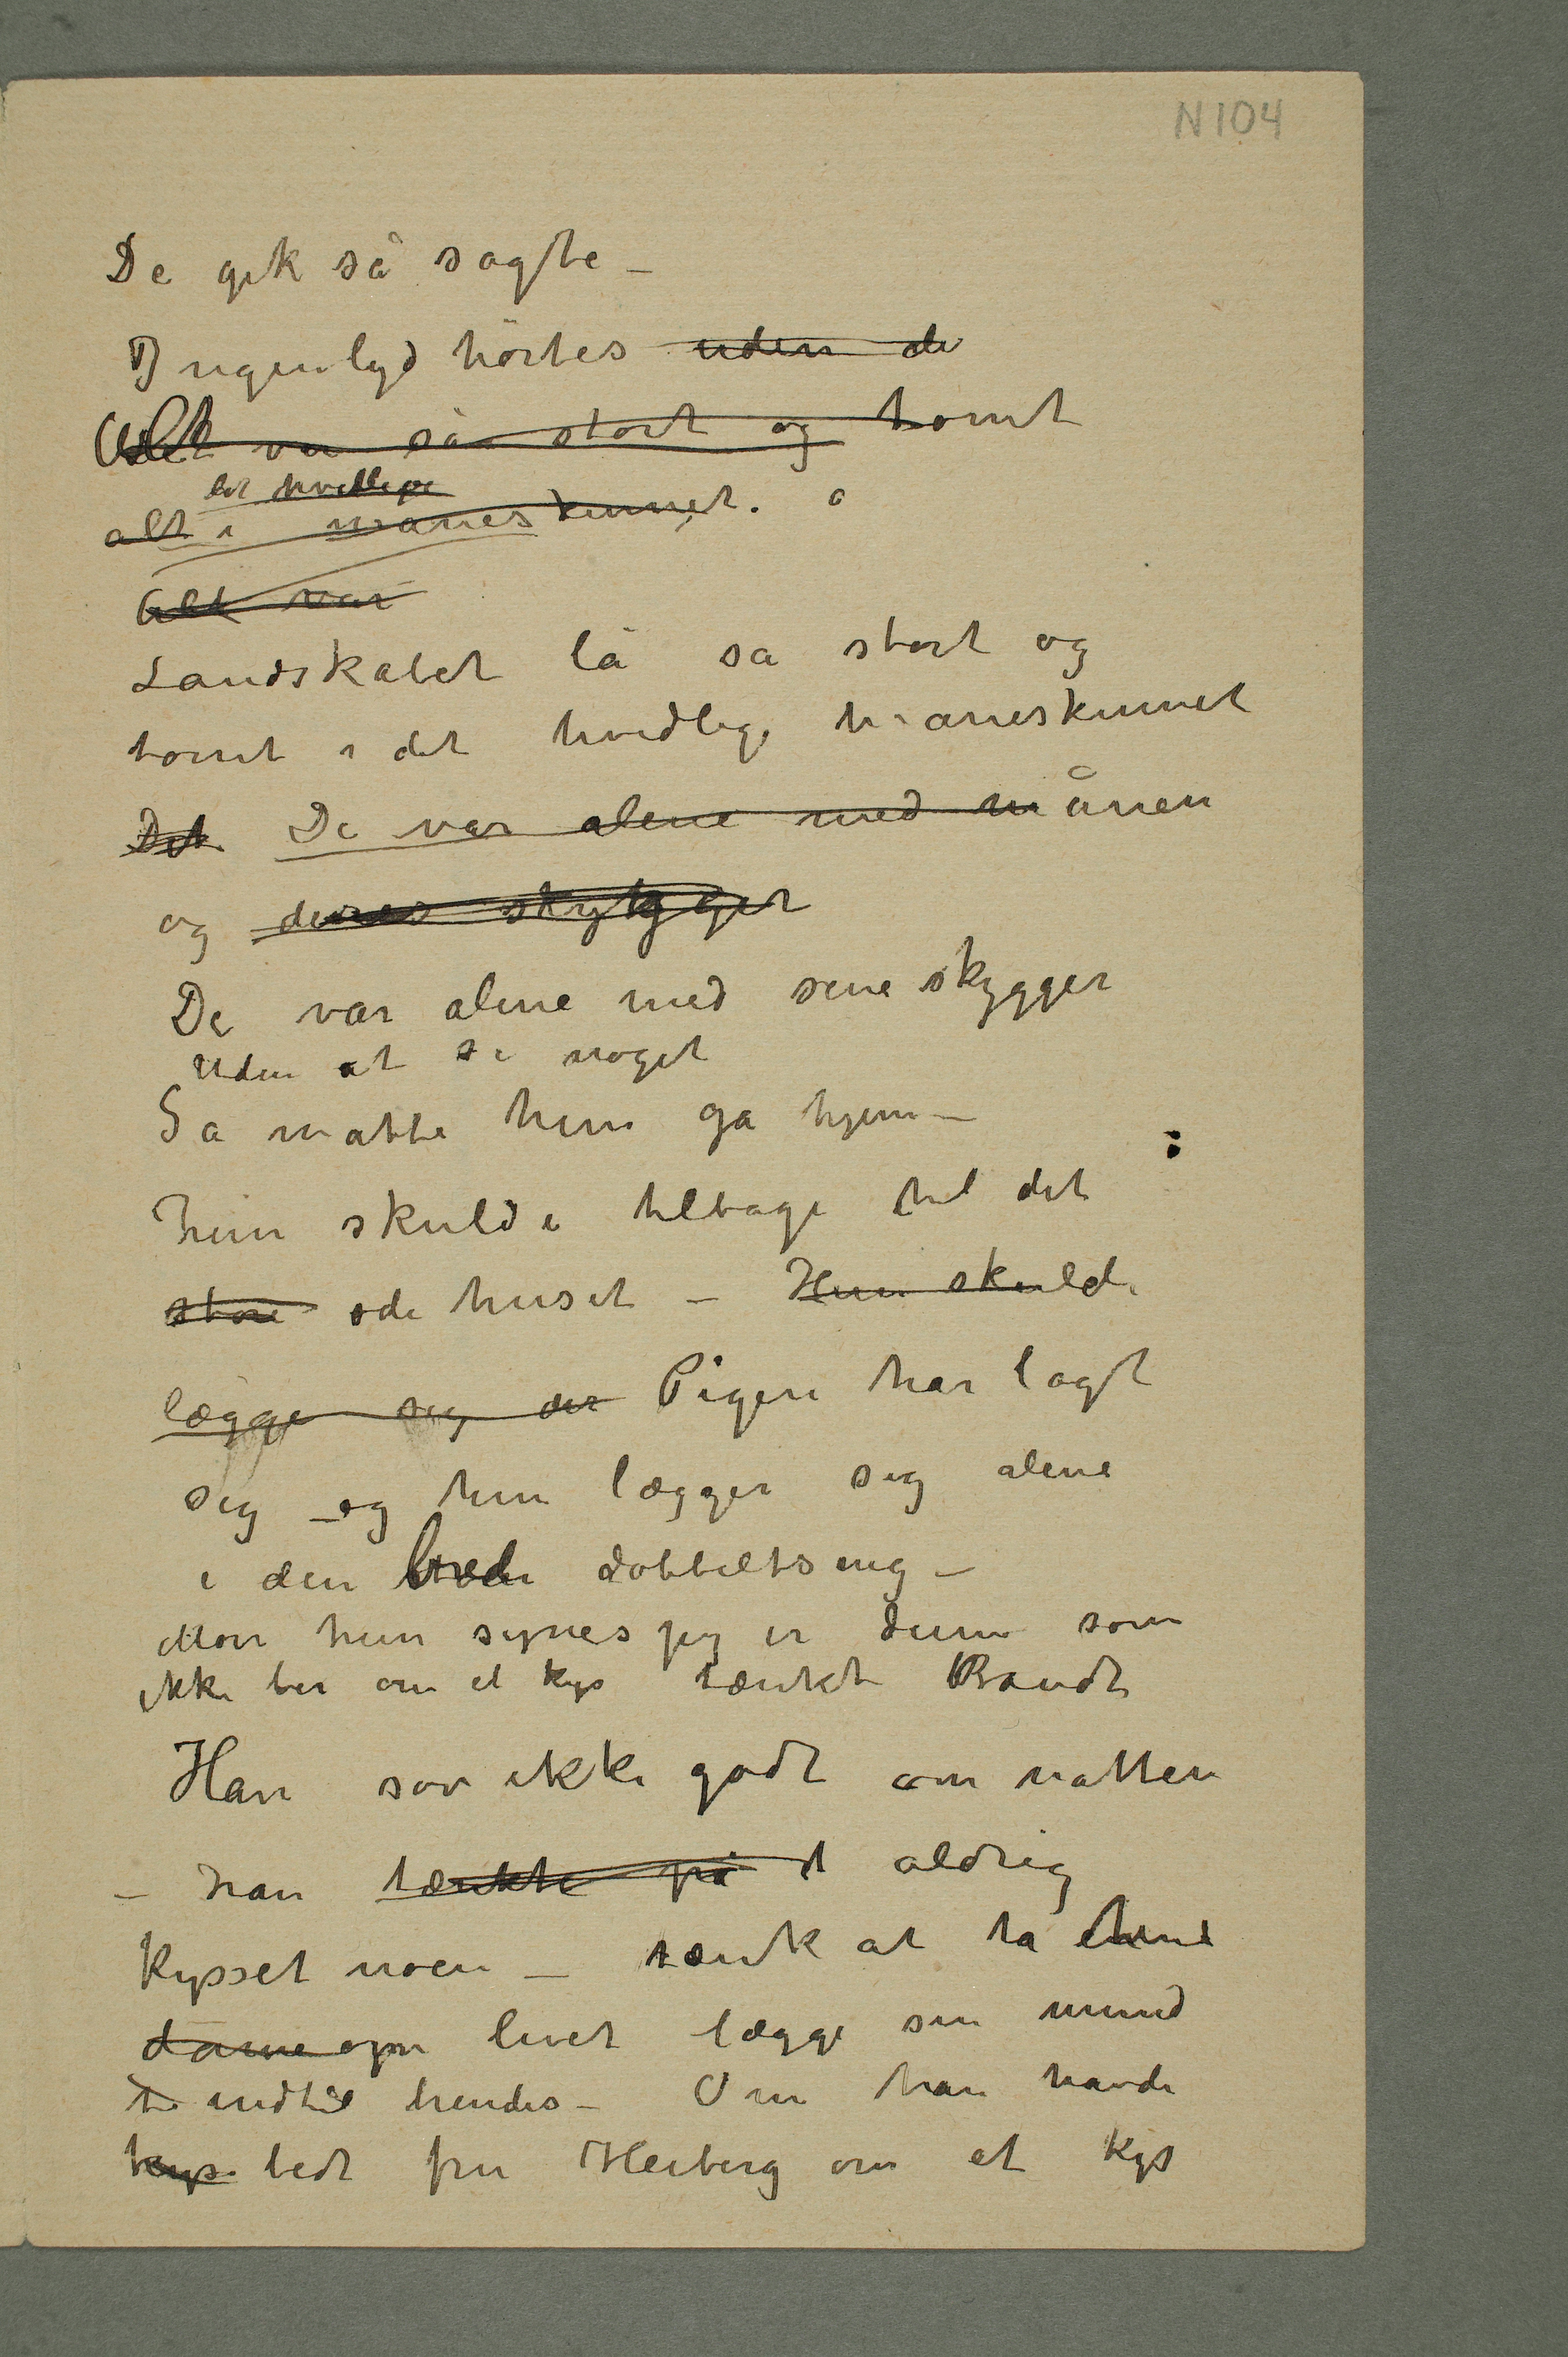 N 104
De gik så sagte –
Ingen lyd hørtes uden de
Alt var så stort og tomt
det hvidlige
alt i måneskinnet.
Alt var
Landskabet lå sa stort og
tomt i det hvidlige maneskinnet
Det De var alene med månen
og deres skygger
De var alene med sine skygger
Uden at si noget
Sa matte hun ga hjem –
hun skulde tilbage til det
store øde huset – Hun skulde
lægge sig der Pigen har lagt
sig – og hun lægger sig alene
i den brede dobbeltseng –
Mon hun synes jeg er dum som
ikke ber om et kys tænkte Brandt
Han sov ikke godt om natten
– han tænkte på aldrig
kysset noen – tænk at ta
dame om livet lægge sin mund
indtil hendes – Om han havde
kys bedt fru Heiberg om et kys